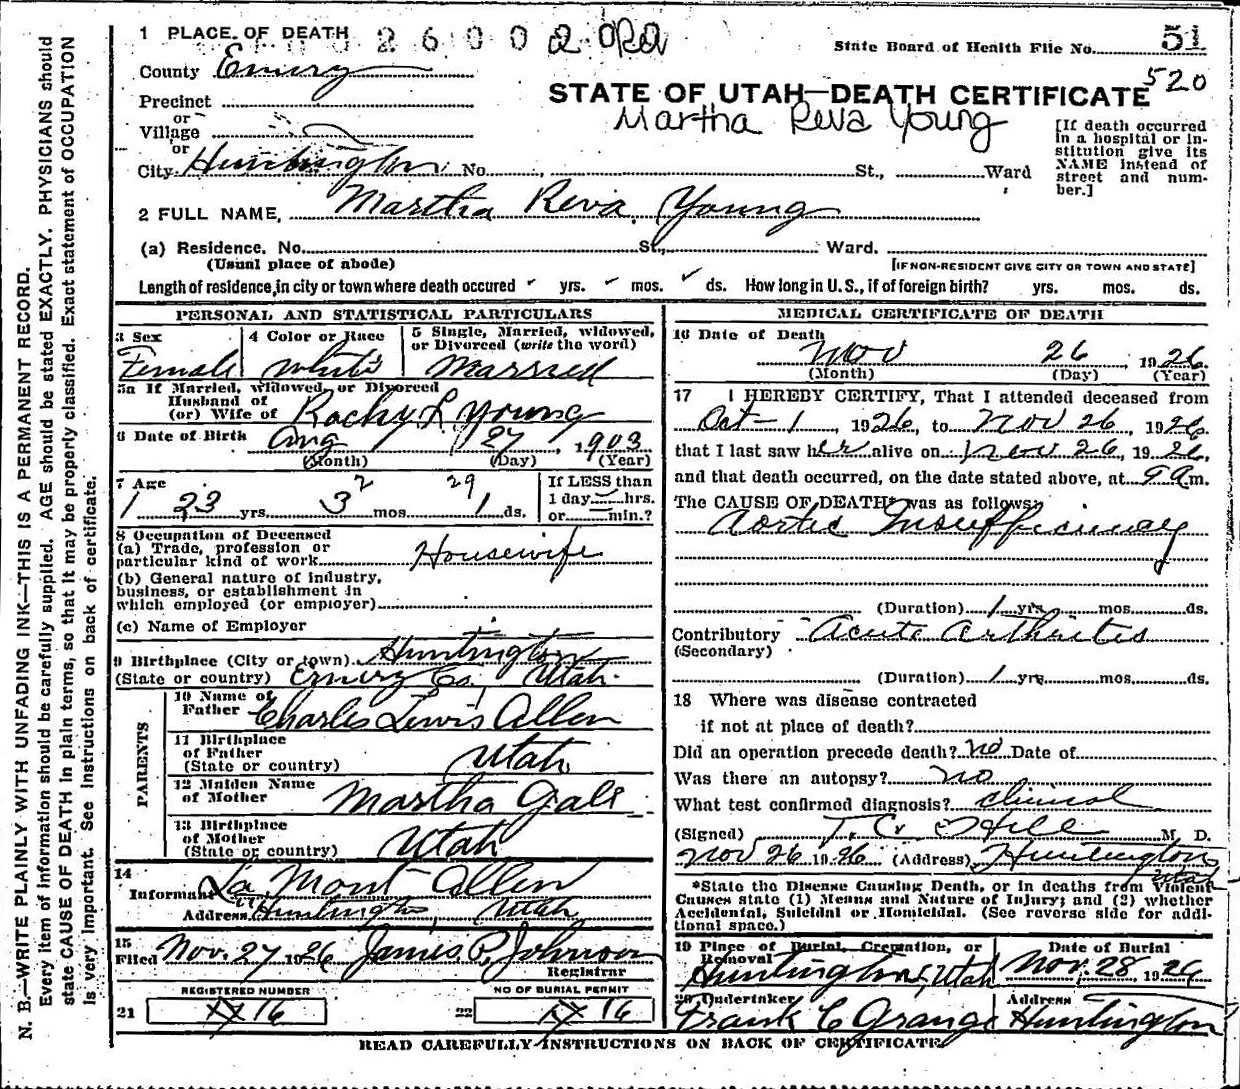 1 PLACE OF DEATH
2 6 0 0 2
State Board of Health File No. 51
County Emery
520
STATE OF UTAH—DEATH CERTIFICATE
Martha Reva Young
Precinct
or
Village
or
City Huntington No. St., Ward
[If death occurred
in a hospital or in-
stitution give its
NAME instead of
street and num-
ber.]
2 FULL NAME, Martha Reva Young
(a) Residence, No. St., Ward.
(Usual place of abode)
[IF NON-RESIDENT GIVE CITY OR TOWN AND STATE]
Length of residence, in city or town where death occured yrs. mos. ds. How long in U. S., if of foreign birth? yrs. mos. ds.
PERSONAL AND STATISTICAL PARTICULARS
3 Sex
Female
4 Color or Race
White
5 Single, Married, widowed,
or Divorced (write the word)
Married
5a If Married, widowed, or Divorced
Husband of
(or) Wife of L Young
6 Date of Birth Aug 27, 1903
(Month) (Day) (Year)
7 Age
23 yrs. 3 2 mos. 29 1 ds.
If LESS than
1 day hrs.
or min.?
8 Occupation of Deceased
(a) Trade, profession or
particular kind of work Housewife
(b) General nature of industry,
business, or establishment in
which employed (or employer)
(c) Name of Employer
9 Birthplace (City or town) Huntington
(State or country) Emery Co. Utah.
PARENTS
10 Name of
Father Charles Lewis Allen
11 Birthplace
of Father
(State or country) Utah
12 Maiden Name
of Mother Martha
13 Birthplace
of Mother
(State or country) Utah
14
Informant La Mont Allen
Address Huntington, Utah
15
Filed Nov. 27 1926 James P. Johnson
Registrar
REGISTERED NUMBER
NO OF BURIAL PERMIT
21 16
22 16
MEDICAL CERTIFICATE OF DEATH
16 Date of Death
Nov 26, 1926
(Month) (Day) (Year)
17 I HEREBY CERTIFY, That I attended deceased from
Oct - 1, 1926, to Nov 26, 1926
that I last saw her alive on Nov 26, 1926,
and that death occurred, on the date stated above, at 9 a m.
The CAUSE OF DEATH* was as follows:
Aortic Insufficiency
(Duration) 1 yrs. mos. ds.
Contributory Acute Arthritis
(Secondary)
(Duration) 1 yrs. mos. ds.
18 Where was disease contracted
if not at place of death?
Did an operation precede death? no Date of
Was there an autopsy? no
What test confirmed diagnosis? clinical
(Signed) T. C. Hill M. D.
Nov 26 1926 (Address) Huntington
Utah
*State the Disease Causing Death, or in deaths from Violent
Causes state (1) Means and Nature of Injury; and (2) whether
Accidental, Suicidal or Homicidal. (See reverse side for addi-
tional space.)
19 Place of Burial, Cremation, or
Removal
Huntington, Utah
Date of Burial
Nov. 28, 1926
20 Undertaker
Frank C Grange
Address
Huntington
READ CAREFULLY INSTRUCTIONS ON BACK OF CERTIFICATE
N. B.—WRITE PLAINLY WITH UNFADING INK—THIS IS A PERMANENT RECORD.
Every item of information should be carefully supplied. AGE should be stated EXACTLY. PHYSICIANS should
state CAUSE OF DEATH in plain terms, so that it may be properly classified. Exact statement of OCCUPATION
is very important. See instructions on back of certificate.